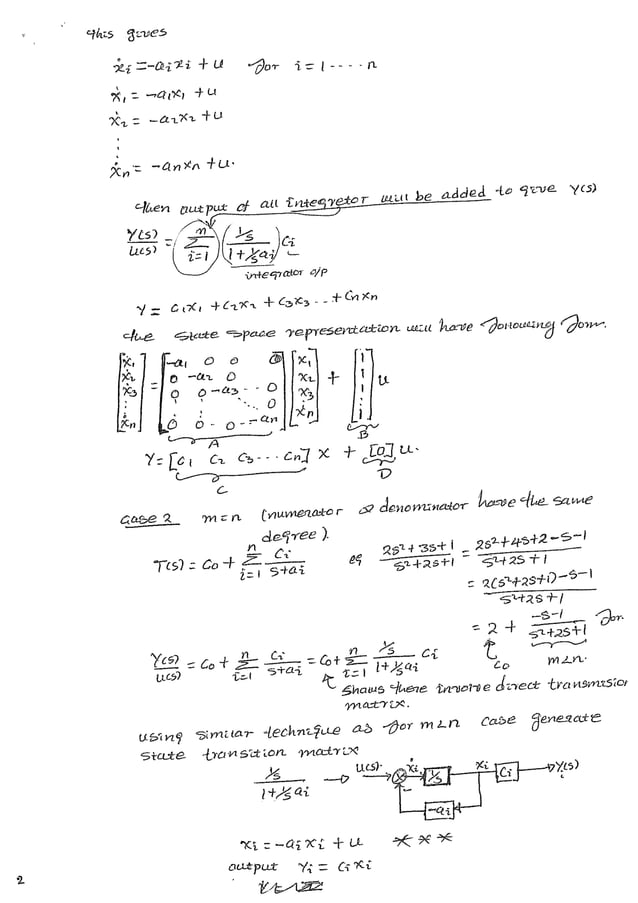 this gives
ẋi = -aixi + u for i = 1 ---- n
ẋ1 = -a1x1 + u
ẋ2 = -a2x2 + u
⋮
ẋn = -anxn + u.
then output of all integretor will be added to give Y(s)
Y(s)/U(s) = n∑i=1 ((1/s)/(1+1/s ai)) Ci
integrator o/p
Y = C1x1 + C2x2 + C3x3 ... + Cnxn
the state space representation will have following form.
[ẋ1 ẋ2 ẋ3 ⋮ ẋn] = [-a1 0 0 0; 0 -a2 0; 0 0 -a3 .. 0; ... 0; 0 0 .. 0 .. -an] [x1 x2 x3 ⋮ xn] + [1 1 1 ⋮ 1] u
A B
Y = [C1 C2 C3 ... Cn] x + [0] u.
C D
Case 2 m=n (numerator & denominator have the same
degree).
T(s) = Co + n∑i=1 Ci/(s+ai) eg (2s²+3s+1)/(s²+2s+1) = (2s²+4s+2-s-1)/(s²+2s+1)
= (2(s²+2s+1)-s-1)/(s²+2s+1)
= 2 + (-s-1)/(s²+2s+1) for
Co m<n
Y(s)/U(s) = Co + n∑i=1 Ci/(s+ai) = Co + n∑i=1 (1/s)/(1+1/s ai) Ci
Shows there involve direct transmision
matrix.
using similar technique as for m<n case generate
state transition matrix
(1/s)/(1+1/s ai) → U(s). ẋi 1/s xi Ci Y(s)
-
-ai
xi = -aixi + u ***
output Yi = Cixi
2